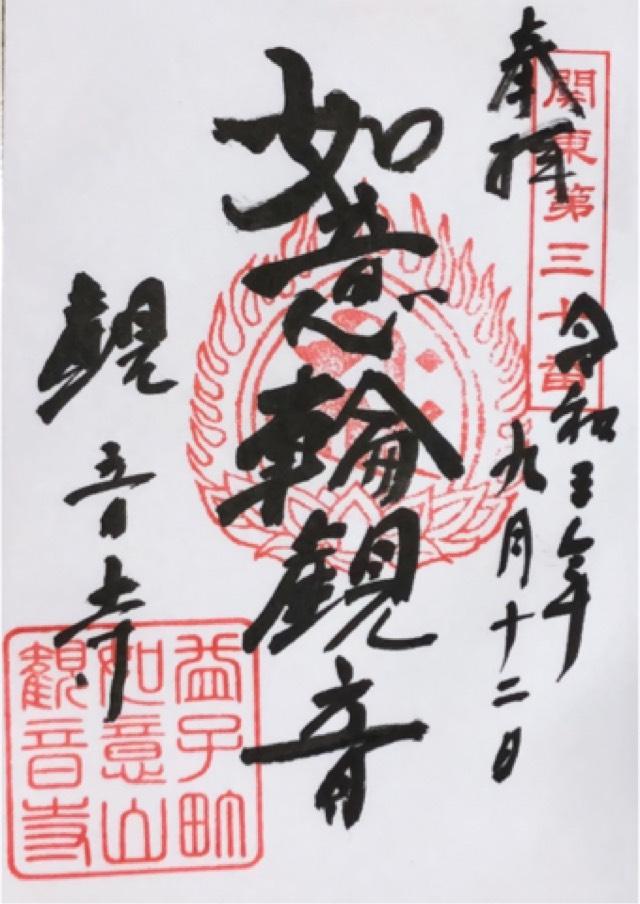 奉拝
関東第三十番
令和三年
九月十二日
如意輪観音
観音寺
益子町
如意山
観音寺